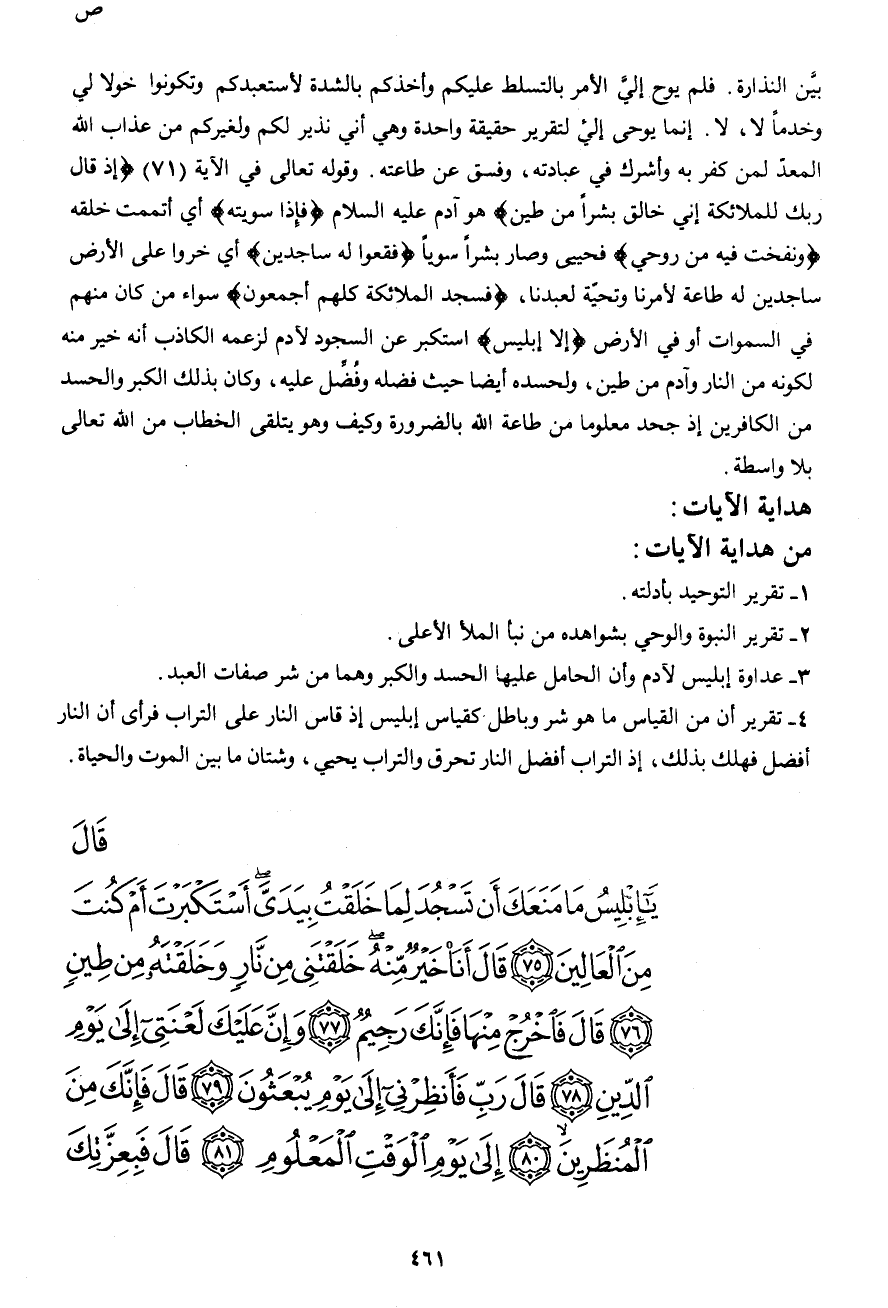 ص
بيَّن النذارة. فلم يوح إليَّ الأمر بالتسلط عليكم وأخذكم بالشدة لأستعبدكم وتكونوا خولا لي
وخدماً لا، لا. إنما يوحى إليّ لتقرير حقيقة واحدة وهي أني نذير لكم ولغيركم من عذاب الله
المعدّ لمن كفر به وأشرك في عبادته، وفسق عن طاعته. وقوله تعالى في الآية (٧١) ﴿إذ قال
ربك للملائكة إني خالق بشراً من طين﴾ هو آدم عليه السلام ﴿فإذا سويته﴾ أي أتممت خلقه
﴿ونفخت فيه من روحي﴾ فحيى وصار بشراً سوياً ﴿فقعوا له ساجدين﴾ أي خروا على الأرض
ساجدين له طاعة لأمرنا وتحيّة لعبدنا، ﴿فسجد الملائكة كلهم أجمعون﴾ سواء من كان منهم
في السموات أو في الأرض ﴿إلا إبليس﴾ استكبر عن السجود لآدم لزعمه الكاذب أنه خير منه
لكونه من النار وآدم من طين، ولحسده أيضا حيث فضله وفُضِّل عليه، وكان بذلك الكبر والحسد
من الكافرين إذ جحد معلوما من طاعة الله بالضرورة وكيف وهو يتلقى الخطاب من الله تعالى
بلا واسطة.
هداية الآيات:
من هداية الآيات:
١ـ تقرير التوحيد بأدلته.
٢ـ تقرير النبوة والوحي بشواهده من نبأ الملأ الأعلى.
٣ـ عداوة إبليس لآدم وأن الحامل عليها الحسد والكبر وهما من شر صفات العبد.
٤ـ تقرير أن من القياس ما هو شر وباطل كقياس إبليس إذ قاس النار على التراب فرأى أن النار
أفضل فهلك بذلك، إذ التراب أفضل النار تحرق والتراب يحيي، وشتان ما بين الموت والحياة.
قَالَ
يَٰٓإِبۡلِيسُ مَا مَنَعَكَ أَن تَسۡجُدَ لِمَا خَلَقۡتُ بِيَدَيَّۖ أَسۡتَكۡبَرۡتَ أَمۡ كُنتَ
مِنَ ٱلۡعَالِينَ ٧٥ قَالَ أَنَا۠ خَيۡرٞ مِّنۡهُ خَلَقۡتَنِي مِن نَّارٖ وَخَلَقۡتَهُۥ مِن طِينٖ
٧٦ قَالَ فَٱخۡرُجۡ مِنۡهَا فَإِنَّكَ رَجِيمٞ ٧٧ وَإِنَّ عَلَيۡكَ لَعۡنَتِيٓ إِلَىٰ يَوۡمِ
ٱلدِّينِ ٧٨ قَالَ رَبِّ فَأَنظِرۡنِيٓ إِلَىٰ يَوۡمِ يُبۡعَثُونَ ٧٩ قَالَ فَإِنَّكَ مِنَ
ٱلۡمُنظَرِينَ ٨٠ إِلَىٰ يَوۡمِ ٱلۡوَقۡتِ ٱلۡمَعۡلُومِ ٨١ قَالَ فَبِعِزَّتِكَ
٤٦١